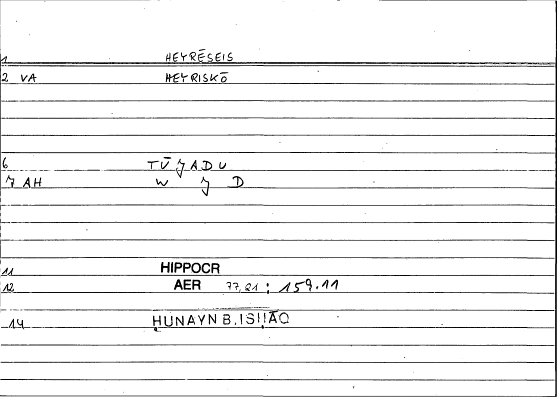 1 HEYRĒSEIS
2 VA HEYRISKŌ
6 TŪJADU
7 AH W J D
11 HIPPOCR
12 AER 77,21 : 159.11
14 ḤUNAYN B. ISḤĀQ